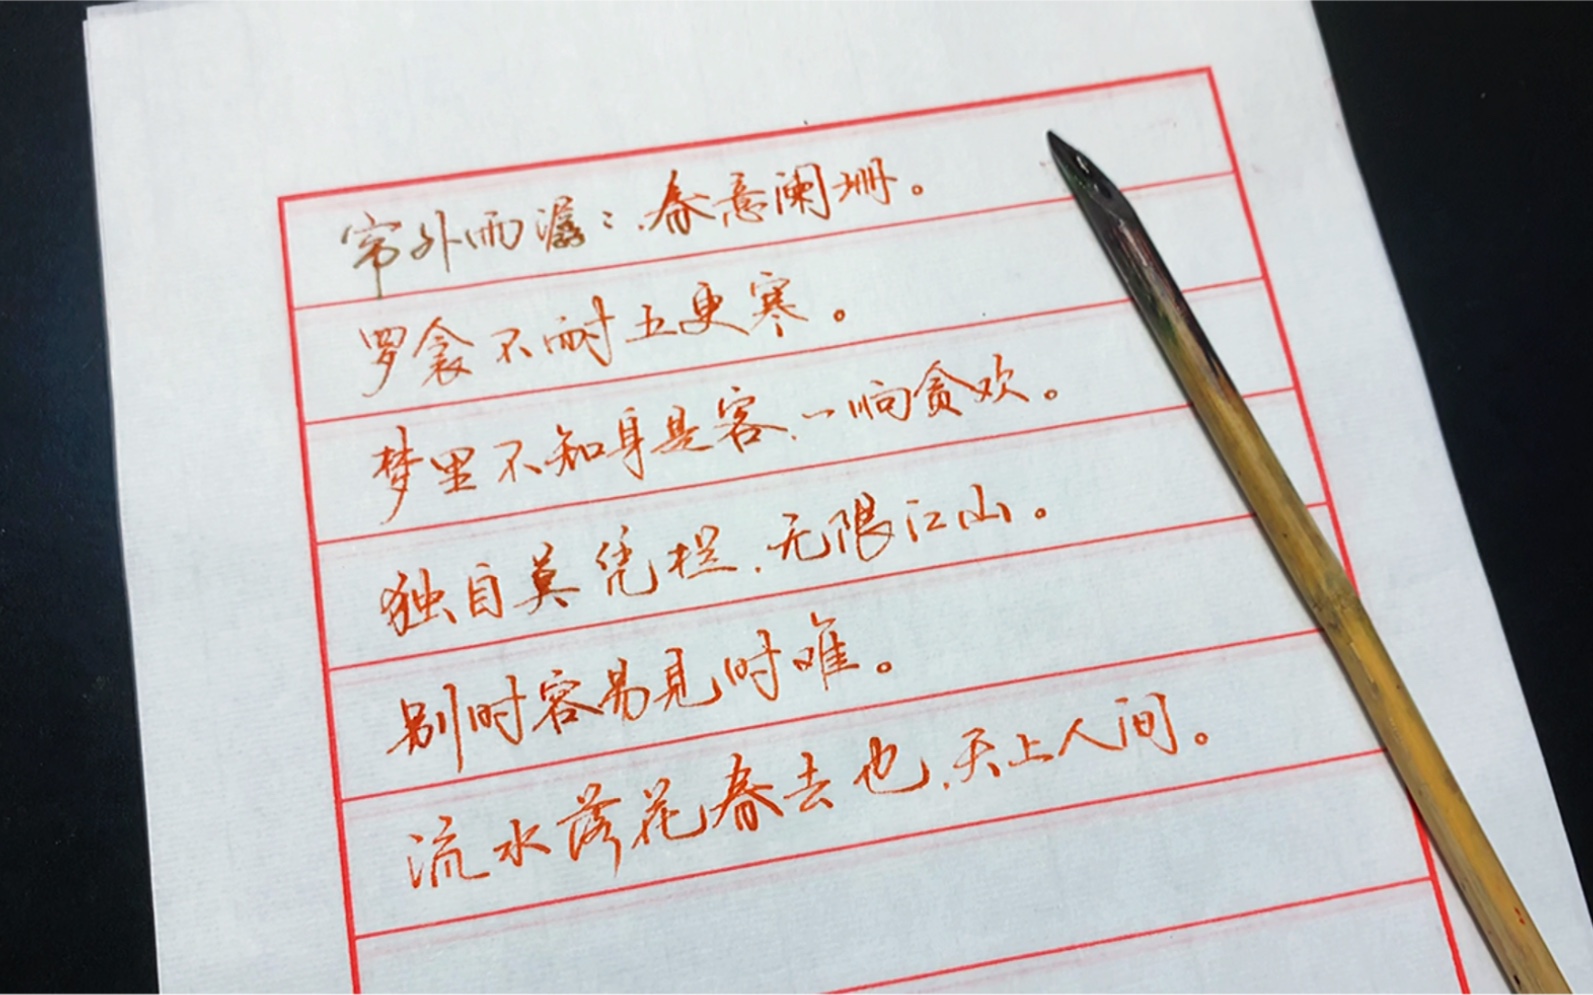 帘外雨潺:,春意阑珊。
罗衾不耐五更寒。
梦里不知身是客,一晌贪欢。
独自莫凭栏,无限江山。
别时容易见时难。
流水落花春去也,天上人间。